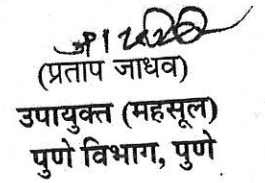 (प्रताप जाधव)
उपायुक्त (महसूल)
पुणे विभाग, पुणे